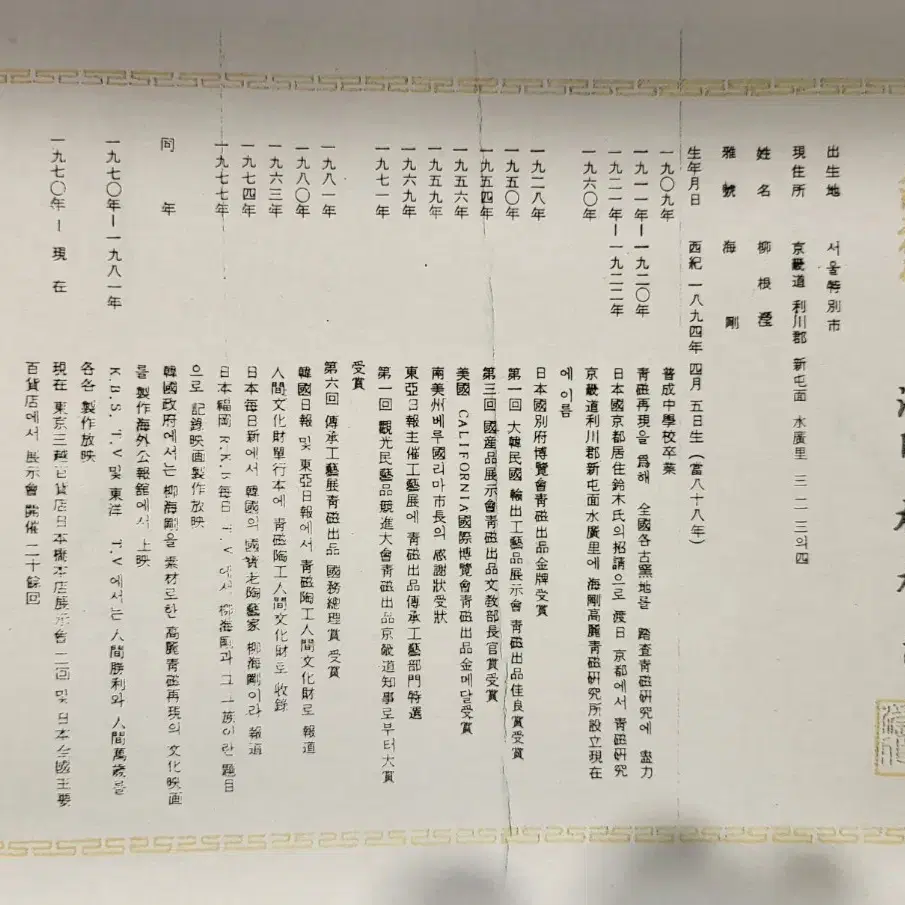 出生地 서울特別市
現住所 京畿道 利川郡 新屯面 水廣里 三二三의四
姓名 柳根瀅
雅號 海剛
生年月日 西紀 一八九四年 四月 五日生 (當八十八年)
一九〇九年 普成中學校卒業
一九一一年ー一九二〇年 靑磁再現을 爲해 全國各古窯地를 踏査靑磁硏究에 盡力
一九二一年ー一九二二年 日本國京都居住鈴木氏의招請으로 渡日 京都에서 靑磁硏究
一九六〇年 京畿道利川郡新屯面水廣里에 海剛高麗靑磁硏究所設立現在
에 이름
一九二八年 日本國別府博覽會靑磁出品金牌受賞
一九五〇年 第一回 大韓民國 輸出工藝品展示會 靑磁出品佳良賞受賞
一九五四年 第三回 國産品展示會靑磁出品文敎部長官賞受賞
一九五六年 美國 CALIFORNIA國際博覽會靑磁出品金메달受賞
一九五九年 南美州베루國리마市長의 感謝狀受狀
一九六九年 東亞日報主催工藝展에 靑磁出品傳承工藝部門特選
一九七一年 第一回 觀光民藝品競進大會靑磁出品京畿道知事로부터大賞
受賞
一九八一年 第六回 傳承工藝展靑磁出品 國務總理賞 受賞
一九八〇年 韓國日報 및 東亞日報에서 靑磁陶工人間文化財로 報道
一九六三年 人間文化財單行本에 靑磁陶工人間文化財로 收錄
一九七四年 日本每日新에서 韓國의 國寶老陶藝家 柳海剛이라 報道
一九七七年 日本福岡 R.K.B每日 T.V 에서 柳海剛과 그一族이란 題目
으로 記錄映画製作放映
同年 韓國政府에서는 柳海剛을 素材로한 高麗靑磁再現의 文化映画
를 製作海外公報館에서 上映
一九七〇年ー一九八一年 K.B.S. T.V 및 東洋 T.V 에서는 人間勝利와 人間萬歲를
各各 製作放映
一九七〇年ー現在 現在 東京三越百貨店日本橋本店展示會 二回 및 日本全國主要
百貨店에서 展示會 開催 二十餘回